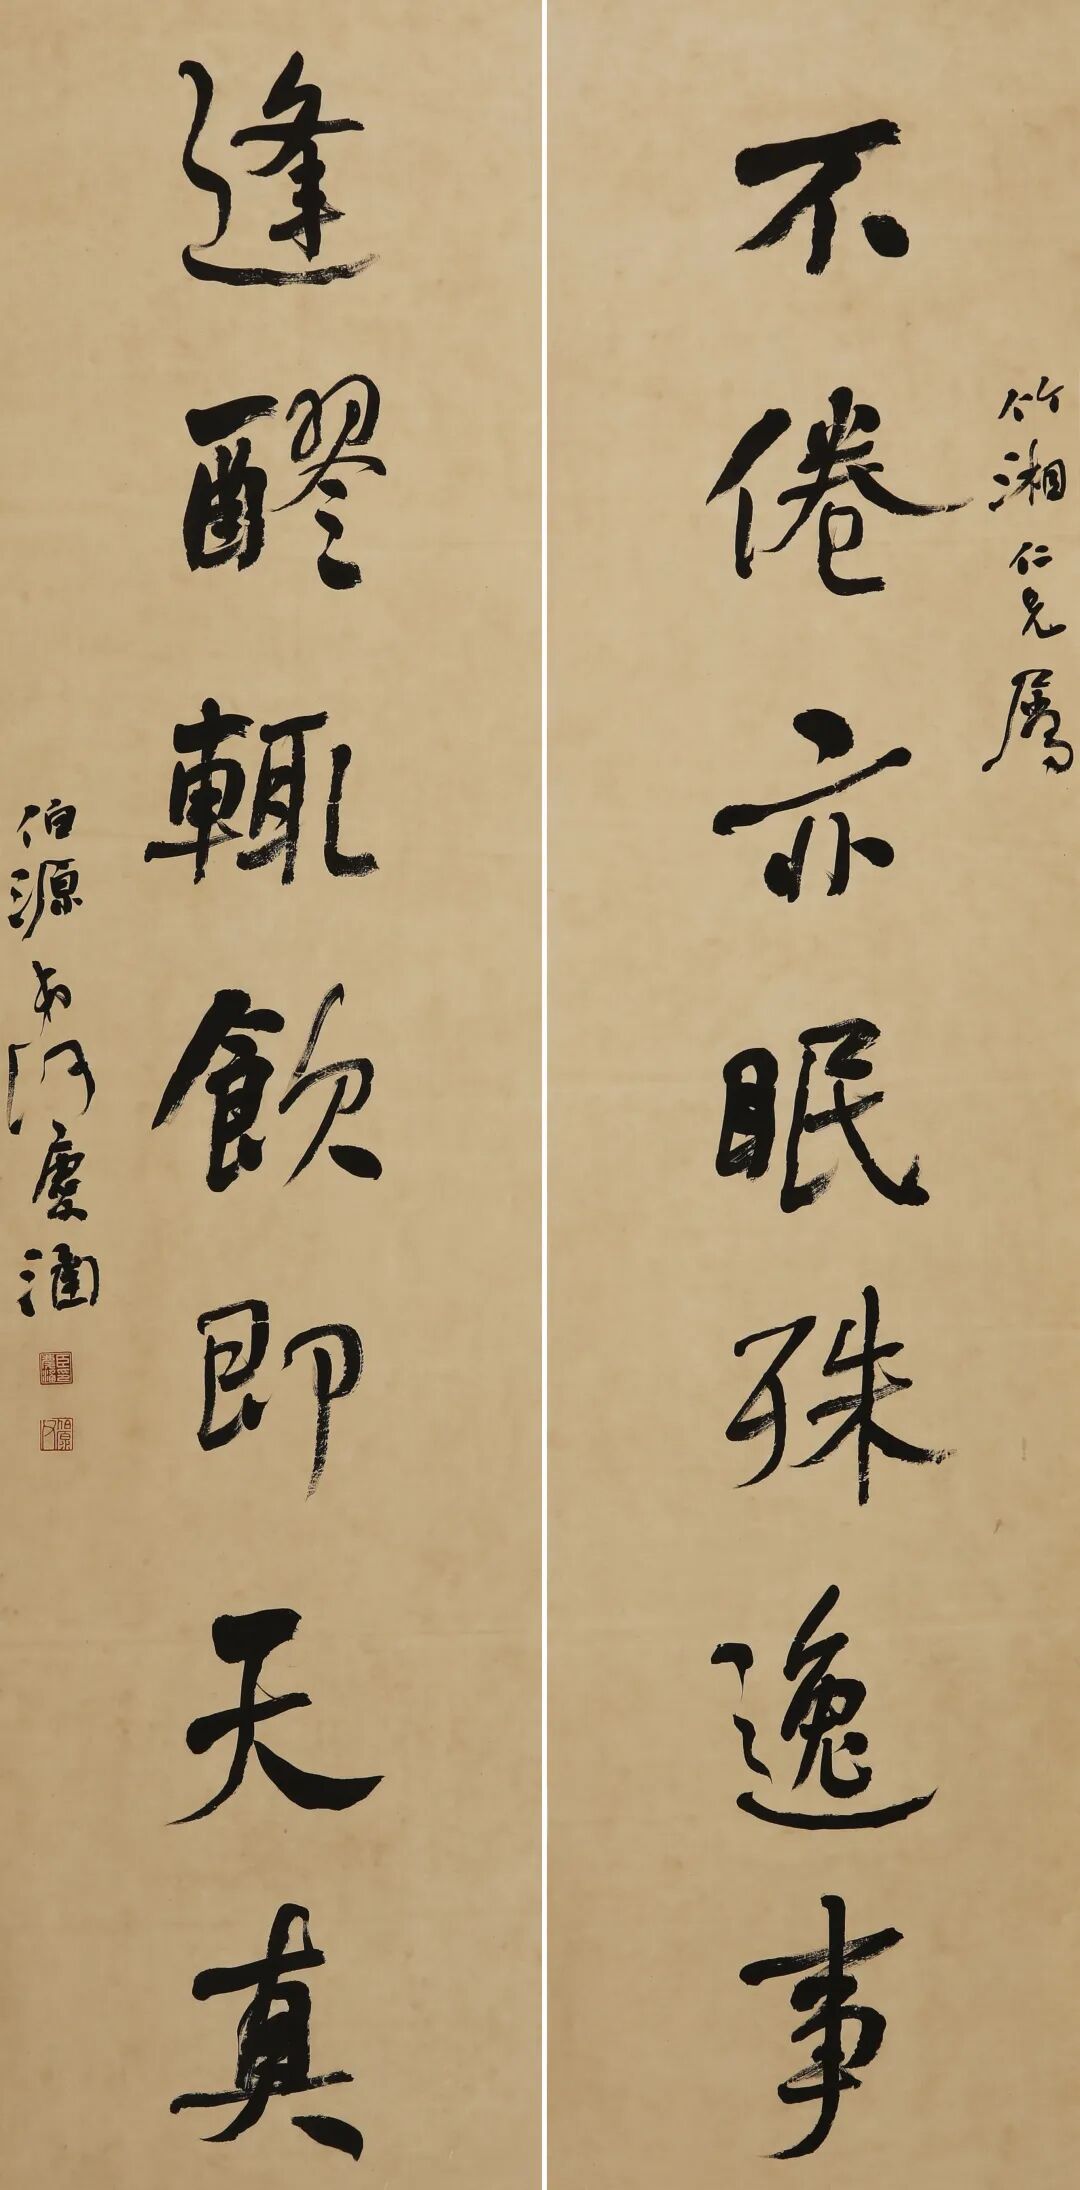 竹湘仁兄属
不倦亦眠殊逸事
逢醪辄飲即天真
伯源弟何慶涵